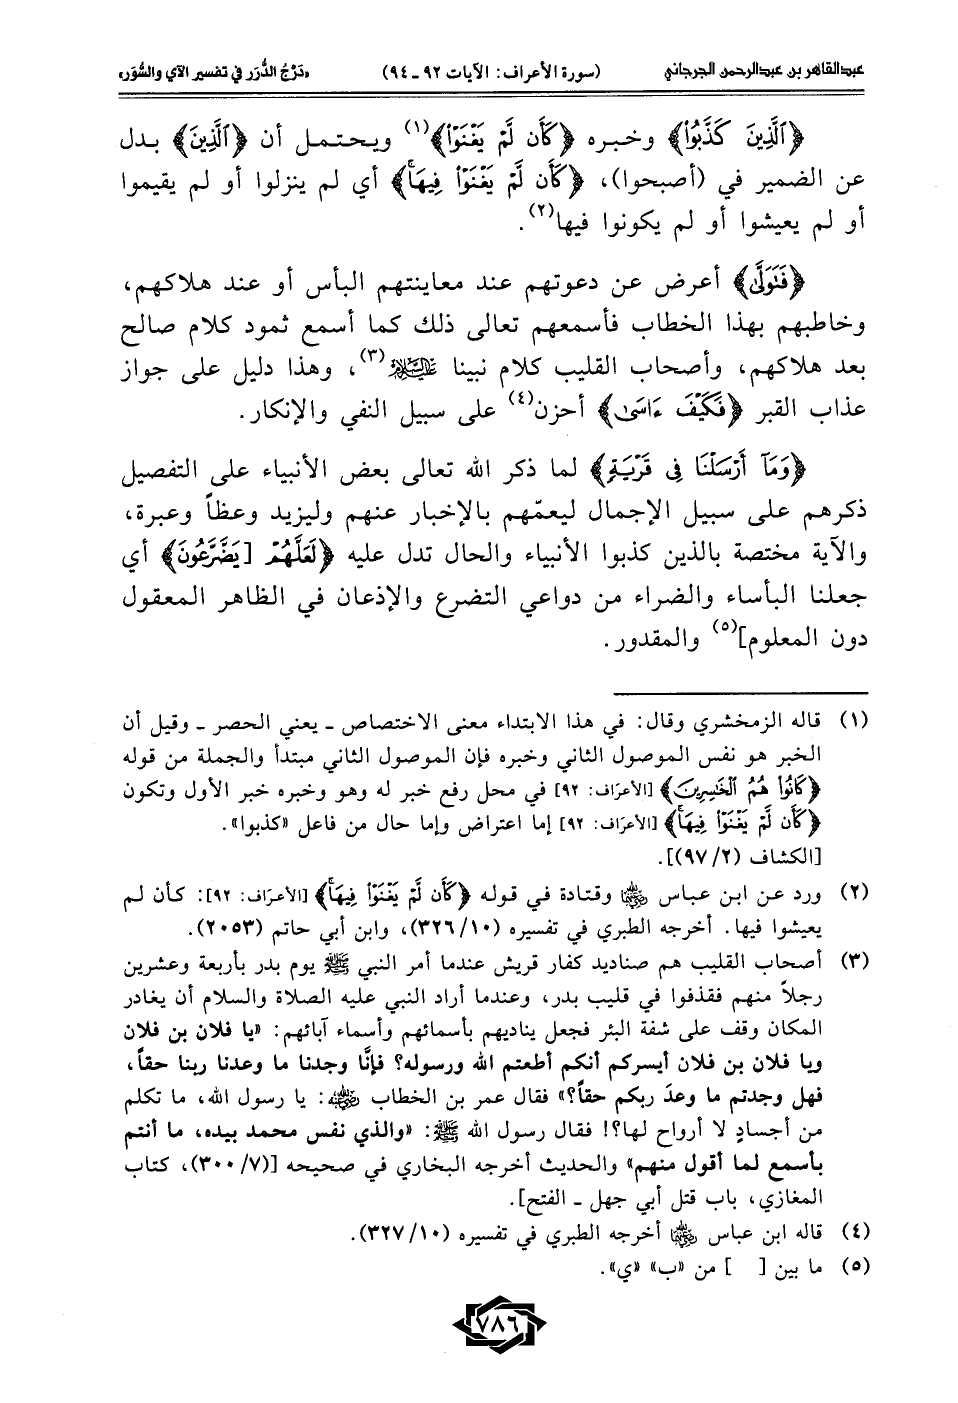 عبدالقاهر بن عبدالرحمن الجرجاني (سورة الأعراف: الآيات ٩٢ ـ ٩٤) «دَرْجُ الدُّرَر في تفسير الآي والسُّوَر»
﴿ٱلَّذِينَ كَذَّبُوا۟﴾ وخبره ﴿كَأَن لَّمْ يَغْنَوْا۟﴾(١) ويحتمل أن ﴿ٱلَّذِينَ﴾ بدل
عن الضمير في (أصبحوا)، ﴿كَأَن لَّمْ يَغْنَوْا۟ فِيهَا ۚ﴾ أي لم ينزلوا أو لم يقيموا
أو لم يعيشوا أو لم يكونوا فيها(٢).
﴿فَتَوَلَّىٰ﴾ أعرض عن دعوتهم عند معاينتهم البأس أو عند هلاكهم،
وخاطبهم بهذا الخطاب فأسمعهم تعالى ذلك كما أسمع ثمود كلام صالح
بعد هلاكهم، وأصحاب القليب كلام نبينا عليه السلام(٣)، وهذا دليل على جواز
عذاب القبر ﴿فَكَيْفَ ءَاسَىٰ﴾ أحزن(٤) على سبيل النفي والإنكار.
﴿وَمَآ أَرْسَلْنَا فِى قَرْيَةٍ﴾ لما ذكر الله تعالى بعض الأنبياء على التفصيل
ذكرهم على سبيل الإجمال ليعمّهم بالإخبار عنهم وليزيد وعظاً وعبرة،
والآية مختصة بالذين كذبوا الأنبياء والحال تدل عليه ﴿لَعَلَّهُمْ [يَضَّرَّعُونَ﴾ أي
جعلنا البأساء والضراء من دواعي التضرع والإذعان في الظاهر المعقول
دون المعلوم](٥) والمقدور.
(١) قاله الزمخشري وقال: في هذا الابتداء معنى الاختصاص ـ يعني الحصر ـ وقيل أن
الخبر هو نفس الموصول الثاني وخبره فإن الموصول الثاني مبتدأ والجملة من قوله
﴿كَانُوا۟ هُمُ ٱلْخَٰسِرِينَ﴾ [الأعرَاف: ٩٢] في محل رفع خبر له وهو وخبره خبر الأول وتكون
﴿كَأَن لَّمْ يَغْنَوْا۟ فِيهَا ۚ﴾ [الأعرَاف: ٩٢] إما اعتراض وإما حال من فاعل «كذبوا».
[الكشاف (٩٧/٢)].
(٢) ورد عن ابن عباس رضي الله عنهما وقتادة في قوله ﴿كَأَن لَّمْ يَغْنَوْا۟ فِيهَا ۚ﴾ [الأعرَاف: ٩٢]: كأن لم
يعيشوا فيها. أخرجه الطبري في تفسيره (٣٢٦/١٠)، وابن أبي حاتم (٢٠٥٣).
(٣) أصحاب القليب هم صناديد كفار قريش عندما أمر النبي ﷺ يوم بدر بأربعة وعشرين
رجلاً منهم فقذفوا في قليب بدر، وعندما أراد النبي عليه الصلاة والسلام أن يغادر
المكان وقف على شفة البئر فجعل يناديهم بأسمائهم وأسماء آبائهم: «يا فلان بن فلان
ويا فلان بن فلان أيسركم أنكم أطعتم الله ورسوله؟ فإنَّا وجدنا ما وعدنا ربنا حقاً،
فهل وجدتم ما وعدَ ربكم حقاً؟» فقال عمر بن الخطاب رضي الله عنه: يا رسول الله، ما تكلم
من أجسادٍ لا أرواح لها؟! فقال رسول الله ﷺ: «والذي نفس محمد بيده، ما أنتم
بأسمع لما أقول منهم» والحديث أخرجه البخاري في صحيحه [(٣٠٠/٧)، كتاب
المغازي، باب قتل أبي جهل ـ الفتح].
(٤) قاله ابن عباس رضي الله عنهما أخرجه الطبري في تفسيره (٣٢٧/١٠).
(٥) ما بين [ ] من «ب» «ي».
٧٨٦